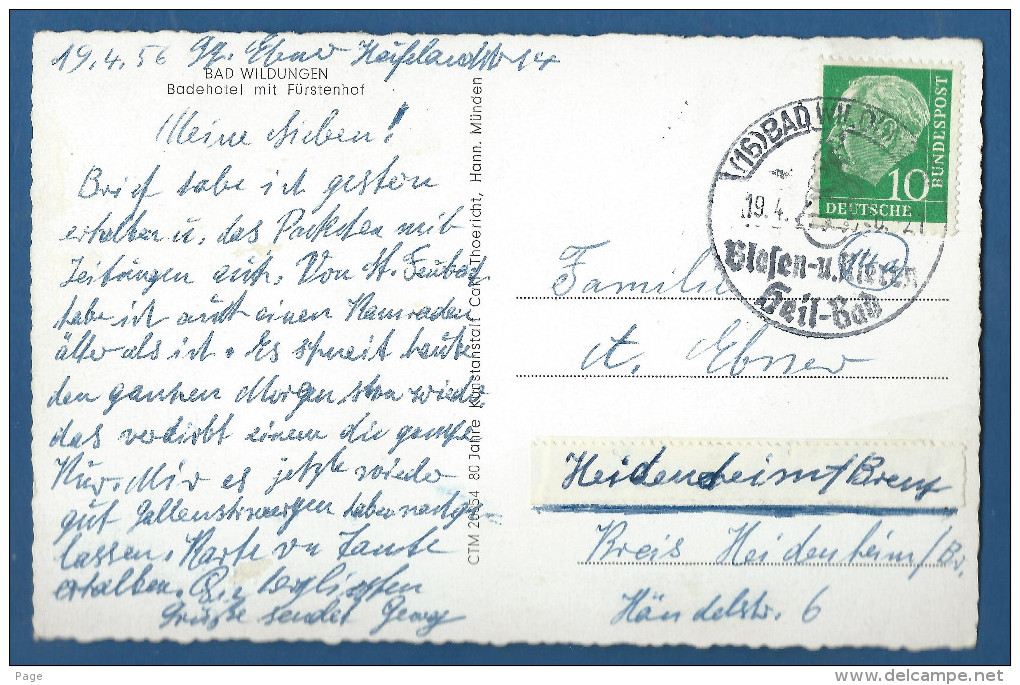 19.4.56 Gg. Ebner Hufelandstr 14
BAD WILDUNGEN
Badehotel mit Fürstenhof
Meine Lieben!
Brief habe ich gestern
erhalten u. das Packchen mit
Zeitungen auch. Von
habe ich auch einen Kameraden
älter als ich. Es schneit heute
den ganzen Morgen schon wieder
das verdirbt einem die ganze
Kur. Mir es jetzt wieder
gut Gallenschmerzen haben nachge-
lassen. Karte von Tante
erhalten. Die herzlichsten
Grüße sendet Georg
CTM 80 Jahre Kunstanstalt Carl Thoericht, Hann. Münden
(16) BAD WILDUNGEN
19.4.
Blasen-u. Nieren
Heil-Bad
10
DEUTSCHE
BUNDESPOST
Familie
A. Ebner
Heidenheim/Brenz
Kreis Heidenheim/Br.
Händelstr. 6
Page
delcampe.net